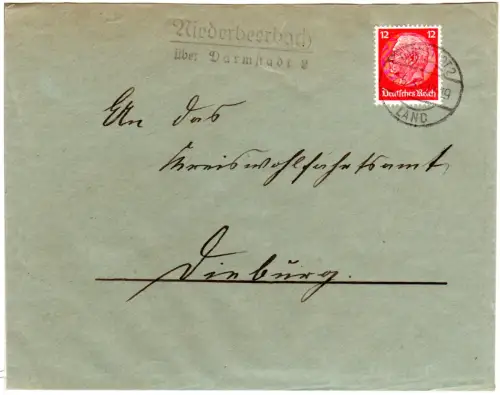 Niederbeerbach
über Darmstadt 2
12 12
Deutsches Reich
LAND
An das
Kreiswohlfahrtsamt
Dieburg.